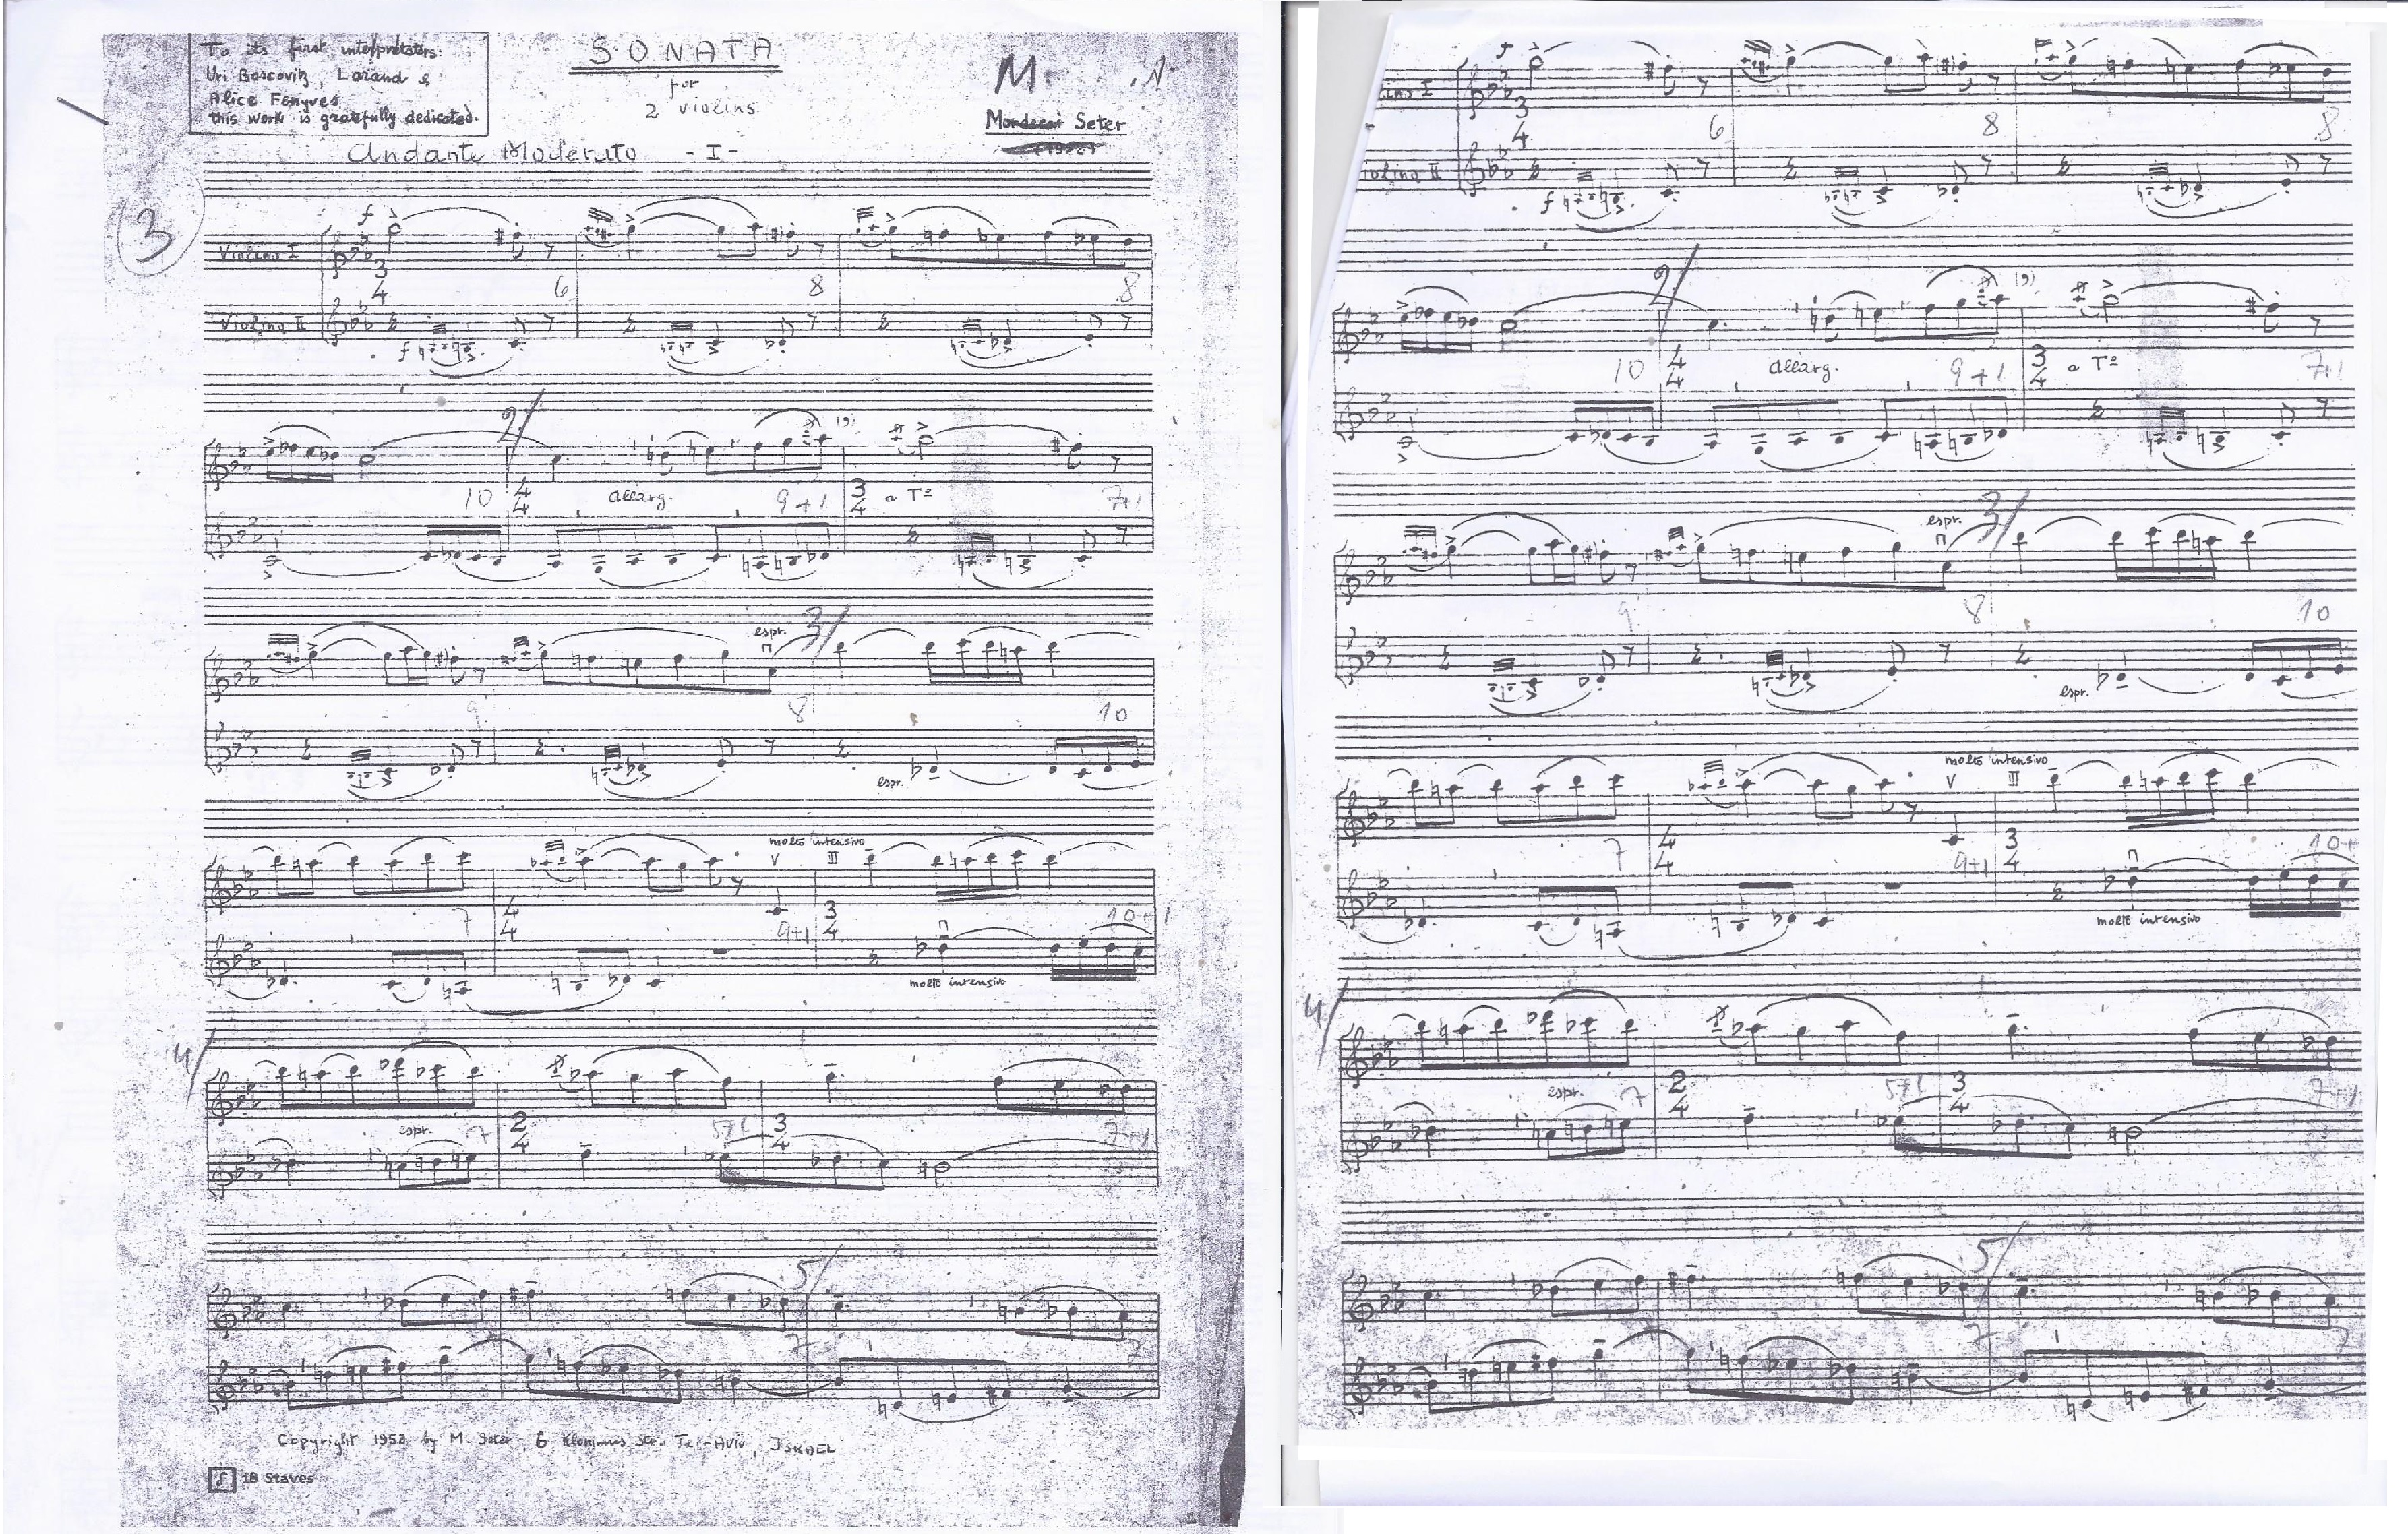 To its first interpretators:
Uri Boscovitz, Lorand &
Alice Fenyves
this work is gratefully dedicated.
SONATA
for
2 violins
M.
Mordecai Seter
Andante Moderato - I -
3
f
Violino I
3
4
6
8
8
Violino II
f
2/
10
4
4
allarg.
9+1
(9)
3
4
a Tº
7+1
espr.
3/
9
8
10
espr.
molto intensivo
V
III
7
4
4
9+1
3
4
10+1
molto intensivo
4/
espr.
7
2
4
5+1
3
4
7+1
5/
7
7
Copyright 1952 by M. Seter 6 Klonimus Str. Tel-Aviv, ISRAEL
18 Staves
f
3
4
6
8
8
Violino II
f
2/
10
4
4
allarg.
9+1
(9)
3
4
a Tº
7+1
espr.
3/
9
8
10
espr.
molto intensivo
V
III
7
4
4
9+1
3
4
10+
molto intensivo
4/
espr.
7
2
4
5+1
3
4
7+1
5/
7
7